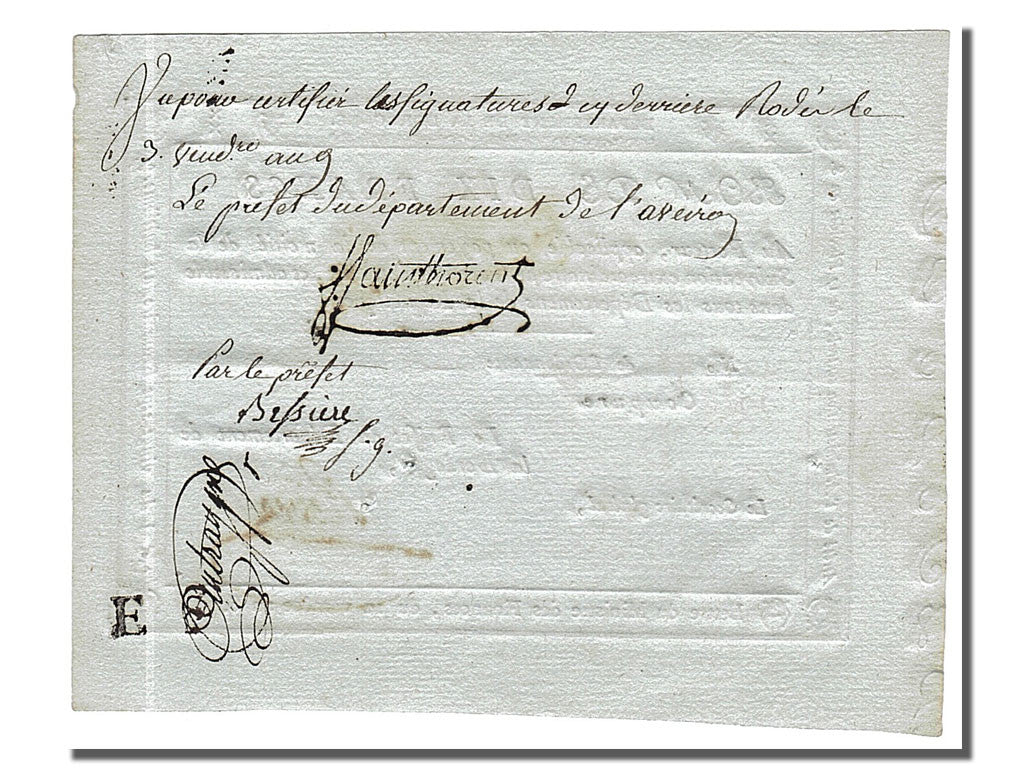 Vu pour certifier les signatures d cy derriere Rodés le
3. vend.re an 9
Le prefet du département de l'aveiron
Sainthorent
Par le préfet
Bessiere
s.g.
E